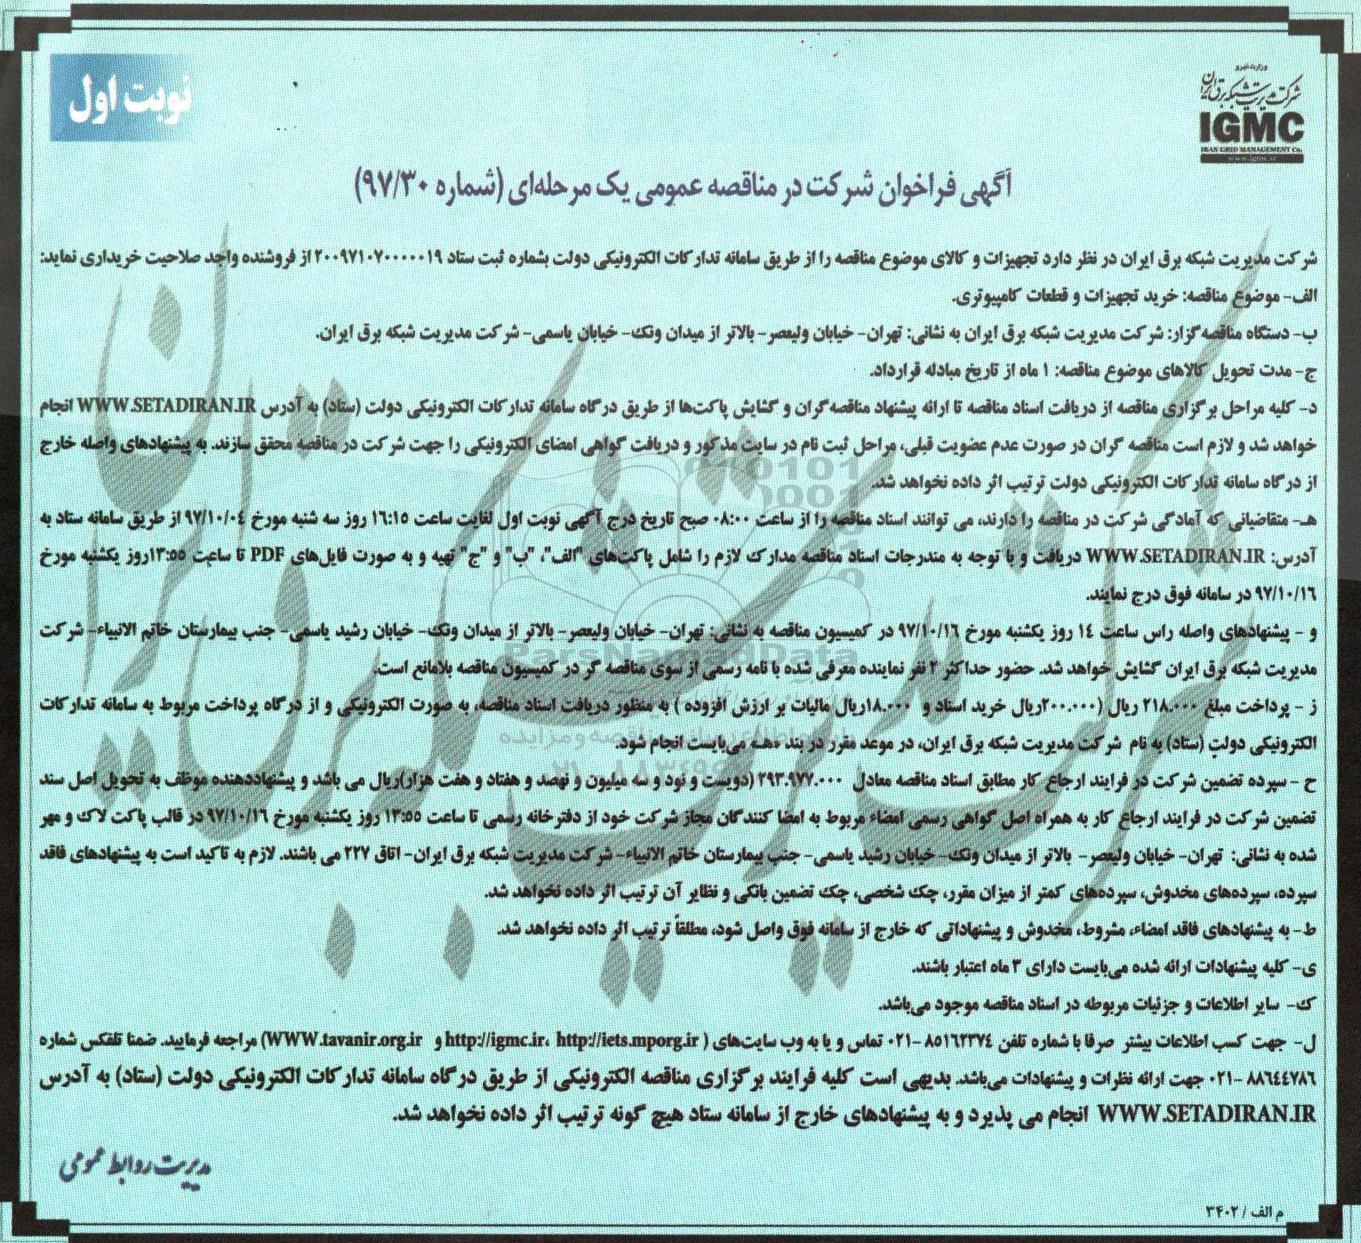 وزارت نیرو
شرکت مدیریت شبکه برق ایران
IGMC
IRAN GRID MANAGEMENT Co.
www.igmc.ir
نوبت اول
آگهی فراخوان شرکت در مناقصه عمومی یک مرحله‌ای (شماره ۹۷/۳۰)
شرکت مدیریت شبکه برق ایران در نظر دارد تجهیزات و کالای موضوع مناقصه را از طریق سامانه تدارکات الکترونیکی دولت بشماره ثبت ستاد ۲۰۰۹۷۱۰۷۰۰۰۰۰۱۹ از فروشنده واجد صلاحیت خریداری نماید:
الف- موضوع مناقصه: خرید تجهیزات و قطعات کامپیوتری.
ب- دستگاه مناقصه‌گزار: شرکت مدیریت شبکه برق ایران به نشانی: تهران- خیابان ولیعصر- بالاتر از میدان ونک- خیابان یاسمی- شرکت مدیریت شبکه برق ایران.
ج- مدت تحویل کالاهای موضوع مناقصه: ۱ ماه از تاریخ مبادله قرارداد.
د- کلیه مراحل برگزاری مناقصه از دریافت اسناد مناقصه تا ارائه پیشنهاد مناقصه‌گران و گشایش پاکت‌ها از طریق درگاه سامانه تدارکات الکترونیکی دولت (ستاد) به آدرس WWW.SETADIRAN.IR انجام
خواهد شد و لازم است مناقصه گران در صورت عدم عضویت قبلی، مراحل ثبت نام در سایت مذکور و دریافت گواهی امضای الکترونیکی را جهت شرکت در مناقصه محقق سازند. به پیشنهادهای واصله خارج
از درگاه سامانه تدارکات الکترونیکی دولت ترتیب اثر داده نخواهد شد.
هـ- متقاضیانی که آمادگی شرکت در مناقصه را دارند، می توانند اسناد مناقصه را از ساعت ۰۸:۰۰ صبح تاریخ درج آگهی نوبت اول لغایت ساعت ۱۶:۱۵ روز سه شنبه مورخ ۹۷/۱۰/۰۴ از طریق سامانه ستاد به
آدرس: WWW.SETADIRAN.IR دریافت و با توجه به مندرجات اسناد مناقصه مدارک لازم را شامل پاکت‌های "الف"، "ب" و "ج" تهیه و به صورت فایل‌های PDF تا ساعت ۱۳:۵۵روز یکشنبه مورخ
۹۷/۱۰/۱۶ در سامانه فوق درج نمایند.
و - پیشنهادهای واصله راس ساعت ۱۴ روز یکشنبه مورخ ۹۷/۱۰/۱۶ در کمیسیون مناقصه به نشانی: تهران- خیابان ولیعصر- بالاتر از میدان ونک- خیابان رشید یاسمی- جنب بیمارستان خاتم الانبیاء- شرکت
مدیریت شبکه برق ایران گشایش خواهد شد. حضور حداکثر ۲ نفر نماینده معرفی شده با نامه رسمی از سوی مناقصه گر در کمیسیون مناقصه بلامانع است.
ز - پرداخت مبلغ ۲۱۸.۰۰۰ ریال (۲۰۰.۰۰۰ریال خرید اسناد و ۱۸.۰۰۰ریال مالیات بر ارزش افزوده ) به منظور دریافت اسناد مناقصه، به صورت الکترونیکی و از درگاه پرداخت مربوط به سامانه تدارکات
الکترونیکی دولت (ستاد) به نام شرکت مدیریت شبکه برق ایران، در موعد مقرر در بند «هـ» می‌بایست انجام شود.
ح - سپرده تضمین شرکت در فرایند ارجاع کار مطابق اسناد مناقصه معادل ۲۹۳.۹۷۷.۰۰۰ (دویست و نود و سه میلیون و نهصد و هفتاد و هفت هزار)ریال می باشد و پیشنهاددهنده موظف به تحویل اصل سند
تضمین شرکت در فرایند ارجاع کار به همراه اصل گواهی رسمی امضاء مربوط به امضا کنندگان مجاز شرکت خود از دفترخانه رسمی تا ساعت ۱۳:۵۵ روز یکشنبه مورخ ۹۷/۱۰/۱۶ در قالب پاکت لاک و مهر
شده به نشانی: تهران- خیابان ولیعصر- بالاتر از میدان ونک- خیابان رشید یاسمی- جنب بیمارستان خاتم الانبیاء- شرکت مدیریت شبکه برق ایران- اتاق ۲۲۷ می باشند. لازم به تاکید است به پیشنهادهای فاقد
سپرده، سپرده‌های مخدوش، سپرده‌های کمتر از میزان مقرر، چک شخصی، چک تضمین بانکی و نظایر آن ترتیب اثر داده نخواهد شد.
ط- به پیشنهادهای فاقد امضاء، مشروط، مخدوش و پیشنهاداتی که خارج از سامانه فوق واصل شود، مطلقاً ترتیب اثر داده نخواهد شد.
ی- کلیه پیشنهادات ارائه شده می‌بایست دارای ۳ ماه اعتبار باشند.
ک- سایر اطلاعات و جزئیات مربوطه در اسناد مناقصه موجود می‌باشد.
ل- جهت کسب اطلاعات بیشتر صرفا با شماره تلفن ۸۵۱۶۲۳۷۴ -۰۲۱ تماس و یا به وب سایت‌های ( http://igmc.ir، http://iets.mporg.ir و WWW.tavanir.org.ir) مراجعه فرمایید. ضمنا تلفکس شماره
۸۸۶۴۴۷۸۶ -۰۲۱ جهت ارائه نظرات و پیشنهادات می‌باشد. بدیهی است کلیه فرایند برگزاری مناقصه الکترونیکی از طریق درگاه سامانه تدارکات الکترونیکی دولت (ستاد) به آدرس
WWW.SETADIRAN.IR انجام می پذیرد و به پیشنهادهای خارج از سامانه ستاد هیچ گونه ترتیب اثر داده نخواهد شد.
مدیریت روابط عمومی
م الف / ۳۴۰۲
ParsNamadData